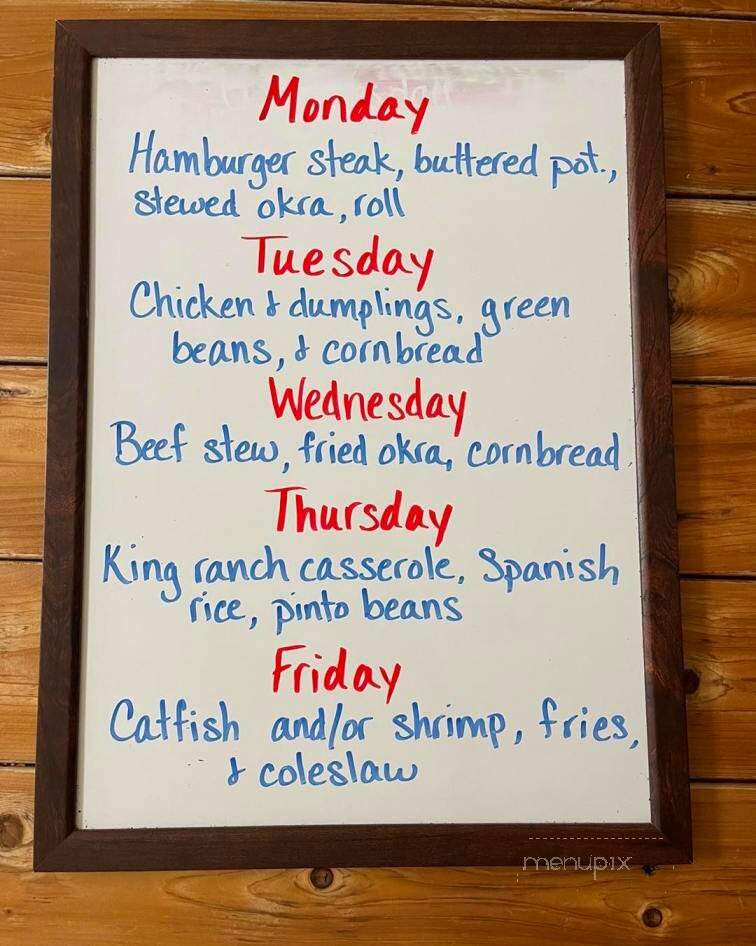 Monday
Hamburger steak, buttered pot.,
stewed okra, roll
Tuesday
Chicken & dumplings, green
beans, & cornbread
Wednesday
Beef stew, fried okra, cornbread
Thursday
King ranch casserole, Spanish
rice, pinto beans
Friday
Catfish and/or shrimp, fries,
& coleslaw
menupix